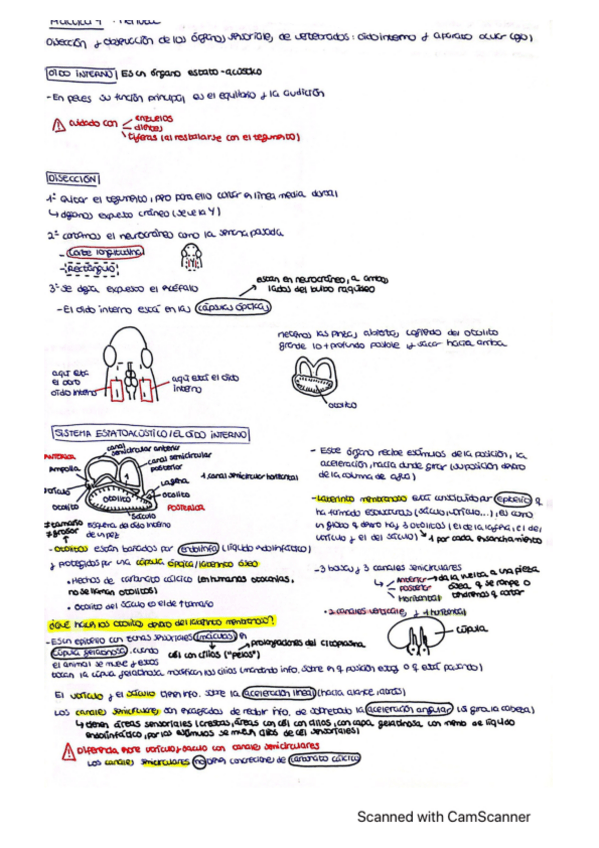 Disección y observación de los órganos sensoriales de vertebrados: oído interno y aparato ocular (ojo)
OÍDO INTERNO Es un órgano estato-acústico
- En peces su función principal es el equilibrio y la audición
cuidado con
anzuelos
dientes
tijeras (al resbalarse con el tegumento)
DISECCIÓN
1º Quitar el tegumento, pero para ello cortar en línea media dorsal
↳ dejamos expuesto cráneo (se ve la Y)
2º cortamos el neurocráneo como la semana pasada
- Corte longitudinal
- Rectángulo
3º Se deja expuesto el encéfalo
están en neurocráneo, a ambos
lados del bulbo raquídeo
- El oído interno está en las cápsulas ópticas
necemos las pinzas abiertas, cogiendo del otolito
grande lo + profundo posible y sacar hacia arriba
aquí está
el otro
oído interno
aquí está el oído
interno
otolito
SISTEMA ESTATOACÚSTICO/EL OÍDO INTERNO
canal
semicircular anterior
ANTERIOR
canal semicircular
posterior
Ampolla
1 canal semicircular horizontal
lagena
utrículo
otolito
otolito
otolito
sáculo
POSTERIOR
≠ tamaño
≠ grosor
esquema de oído interno
de un pez
- Este órgano recibe estímulos de la posición, la
aceleración, hacia donde girar (su posición dentro
de la columna de agua)
- Laberinto membranoso está constituido por epitelio q
ha formado estructuras (sáculo, utrículo...), es como
un globo q dentro hay 3 otolitos (el de la lagena, el del
utrículo y el del sáculo) 1 por cada ensanchamiento
- Otolitos están bañados por endolinfa (líquido endolinfático)
y protegidos por una cápsula ópica/laberinto óseo
• Hechos de carbonato cálcico (en humanos otoconias,
no se llaman otolitos)
• Otolito del sáculo es el de ↑ tamaño
- 3 bolsas y 3 canales semicirculares
anterior
posterior
horizontal
→ da la vuelta a una pieza
ósea q se rompe o
tendremos q cortar
• 2 canales verticales y 1 horizontal
cúpula
¿Qué hacen los otolitos dentro del laberinto membranoso?
- Es un epitelio con zonas sensoriales (máculas) en
cúpula gelatinosa, cuando
cél con cilios ("pelos")
prolongaciones del citoplasma
el animal se mueve y estos
tocan la cúpula gelatinosa modifican los cilios (mandando info. sobre en q posición estoy o q está pasando)
El utrículo y el sáculo tienen info. sobre la aceleración lineal (hacia delante, atrás)
Los canales semicirculares son encargados de recibir info. de sobretodo la aceleración angular (si gira la cabeza)
↳ tienen áreas sensoriales (crestas, áreas con cél con cilios, con capa gelatinosa con menos de líquido
endolinfático, por los estímulos se mueven cilios de cél sensoriales)
Diferencia entre utrículo y sáculo con canales semicirculares
Los canales semicirculares no tienen concreciones de carbonato cálcico
Scanned with CamScanner